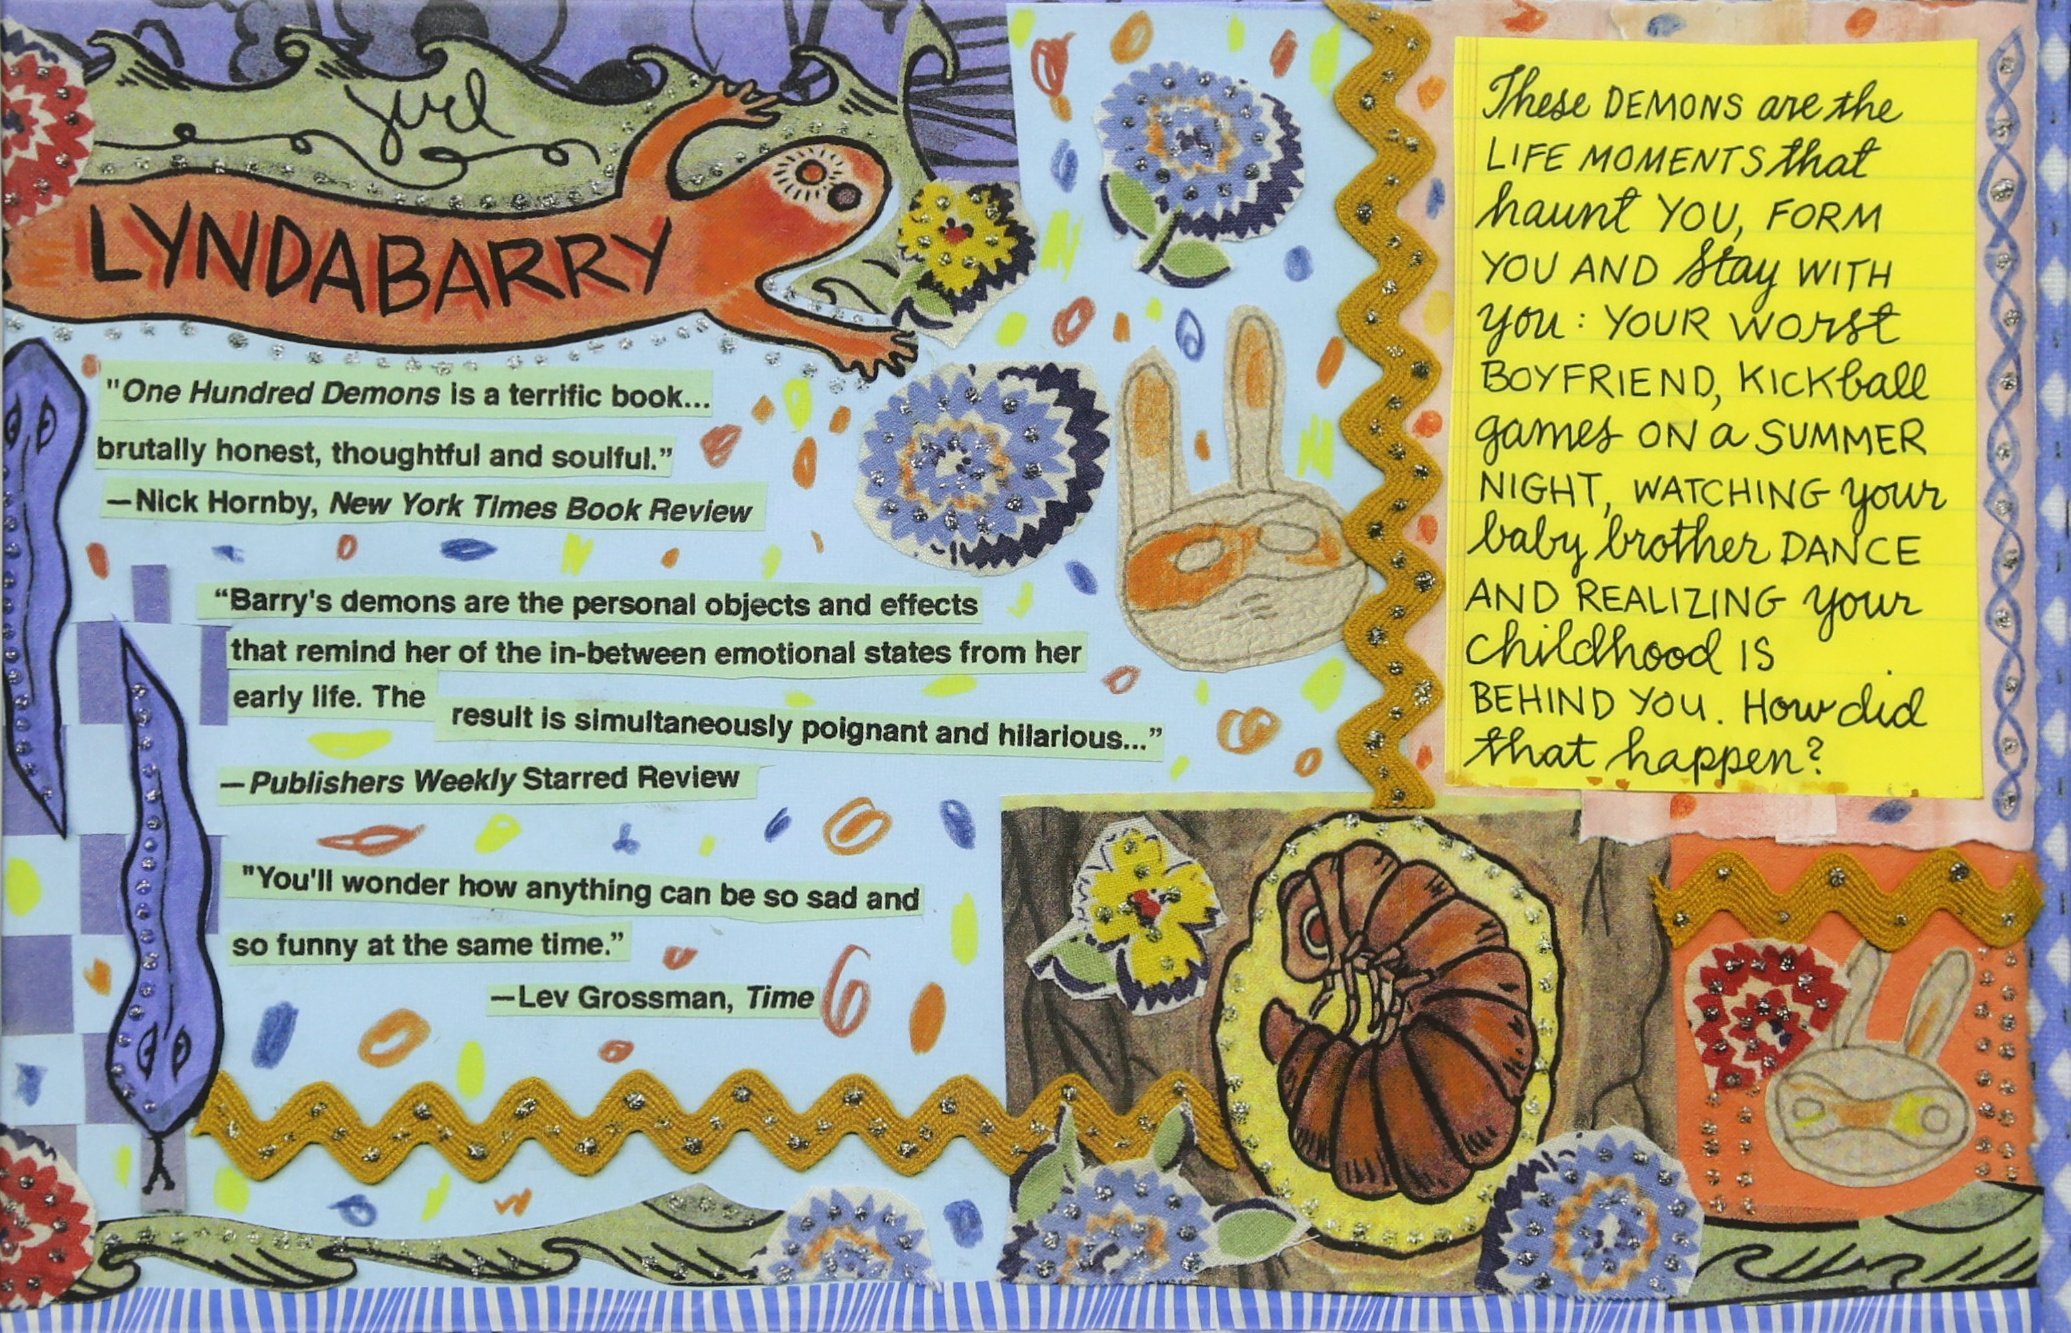 LYNDABARRY
"One Hundred Demons is a terrific book...
brutally honest, thoughtful and soulful.”
—Nick Hornby, New York Times Book Review
“Barry's demons are the personal objects and effects
that remind her of the in-between emotional states from her
early life. The
result is simultaneously poignant and hilarious...”
—Publishers Weekly Starred Review
"You'll wonder how anything can be so sad and
so funny at the same time.”
—Lev Grossman, Time
These DEMONS are the
LIFE MOMENTS that
haunt YOU, FORM
YOU AND Stay WITH
you: YOUR worst
BOYFRIEND, KICKball
games ON a SUMMER
NIGHT, WATCHING your
baby brother DANCE
AND REALIZING your
childhood IS
BEHIND YOU. How did
that happen?